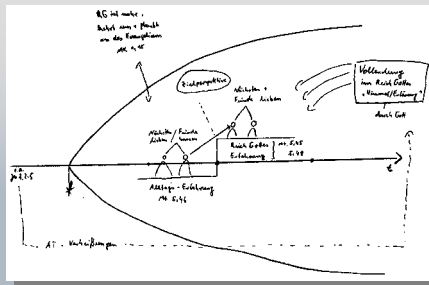 RG ist nahe,
kehrt um + glaubt
an das Evangelium
Mk 1,15
Zielperspektive
Nächsten +
Feinde lieben
Vollendung
im Reich Gottes
"Himmel/Erlösung"
durch Gott
Nächsten / Feinde
lieben hassen
Reich Gottes
Erfahrung
Mt. 5,45
5,48
t
Alltags-Erfahrung
Mt 5,46
AT-Verheißungen